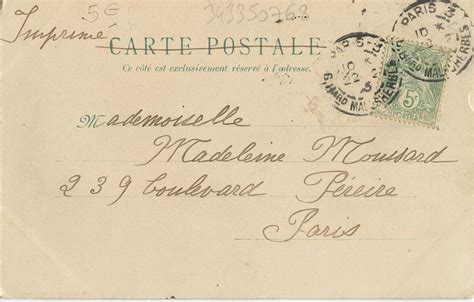 5€ 343350768
Imprimé
CARTE POSTALE
Ce côté est exclusivement réservé à l'adresse.
PARIS
PARIS
5c
POSTES
Mademoiselle
Madeleine Moussard
239 boulevard Péreire
Paris